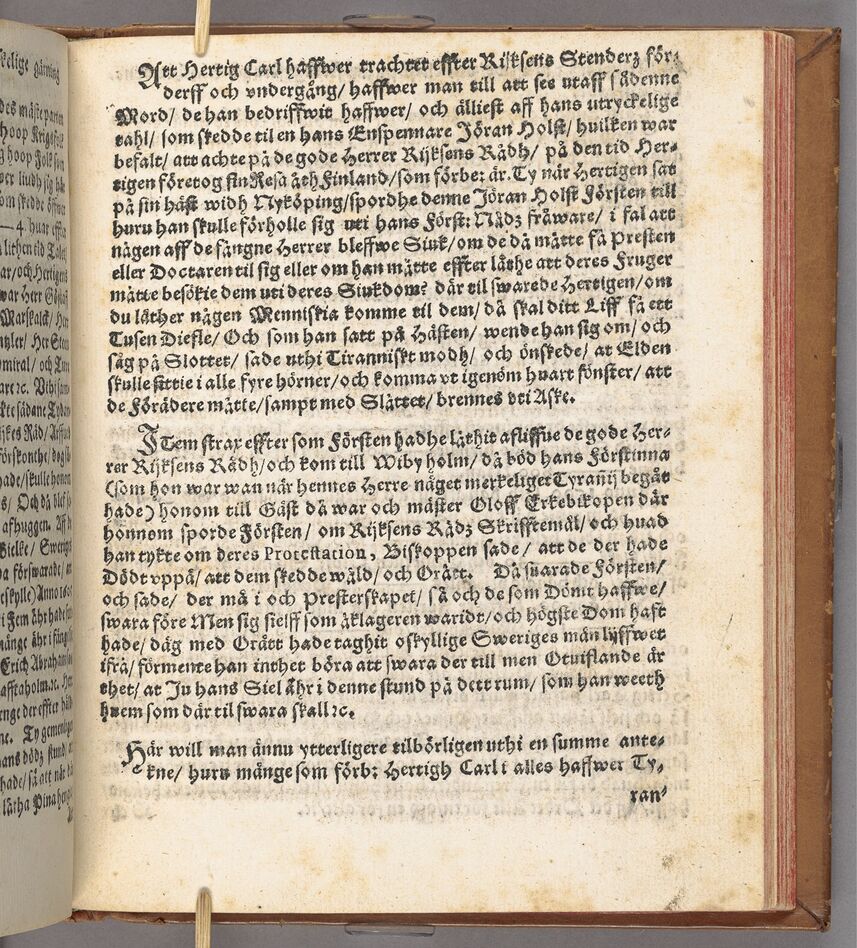 kelige Gärning
des mäste parten
hoop Krigsfolk
ver liudh sig
om skedde
4. huar effter
lithen tid
ar/och Hertigens
war Herr
Marskalck/ Her
ntzler/ Her Sten
miral/ och
are ꝛc.
sådane
ijkes Råd/
hade/ skulle honom
s/ Och då
afhuggen. Aff
Bielke/ Sweriges
försvarade/
eskylle) Anno
i Fem ähr hade
månge ähr i
Erich Abraham
afftaholm.ꝛc. Her
enge der effter
Ty gemenligen
ans dödz stund/
hade/ så att när
låtha Pina
Att Hertig Carl haffwer trachtet effter Rijksens Stenderz för-
derff och vndergång/ haffwer man till att see utaff sådenne
Mord/ de han bedriffwit haffwer/ och älliest aff hans utryckelige
tahl/ som skedde til en hans Enspennare Jöran Holst/ huilken war
befalt/ att achte på de gode Herrer Rijksens Rådh/ på den tid Her-
tigen företog sin Resa åth Finland/ som förbe: är. Ty när Hertigen sat
på sin häst widh Nyköping/ spordhe denne Jöran Holst Försten till
huru han skulle förholle sig uti hans Först: Nådz fråware/ i fal att
någen aff de fångne Herrer bleffwe Siuk/ om de då måtte få Presten
eller Doctaren til sig eller om han måtte effter låthe att deres Fruger
måtte besökie dem uti deres Siukdom? där til swarede Hertigen/ om
du låther någen Menniskia komme til dem/ då skal ditt Liff få ett
Tusen Diefle/ Och som han satt på Hästen/ wende han sig om/ och
såg på Slottet/ sade uthi Tiranniskt modh/ och önskede/ at Elden
skulle sittie i alle fyre hörner/ och komma vt igenöm huart fönster/ att
de Förädere måtte/ sampt med Slåttet/ brennes vti Aske.
ITem strax effter som Försten hadhe låthit affliffue de gode Her-
rer Rijksens Rådh/ och kom till Wibyholm/ då böd hans Förstinna
(som hon war wan när hennes Herre någet merkeliget Tyranij begåt
hade) honom till Gäst då war och mäster Oloff Erkebikopen där
honnom sporde Försten/ om Rijksens Rådz Skrifftemål/ och huad
han tykte om deres Protestation, Biskoppen sade/ att de der hade
Dödt vppå/ att dem skedde wåld/ och Orätt. Då suarade Försten/
och sade/ der må i och Presterskapet/ så och de som Dömt haffwe/
swara före Men sig sielff som åklageren waridt/ och högste Dom hafft
hade/ däg med Orätt hade taghit oskyllige Sweriges män lijffwet
ifrå/ förmente han inthet böra att swara der till men Otuiflande är
thet/ at Ju hans Siel Ähr i denne stund på dett rum/ som han weeth
huem som där til swara skall ꝛc.
Här will man ännu ytterligere tilbörligen uthi en summe ante-
kne/ huru mänge som förb: Hertigh Carl i alles haffwer Ty-
ran-